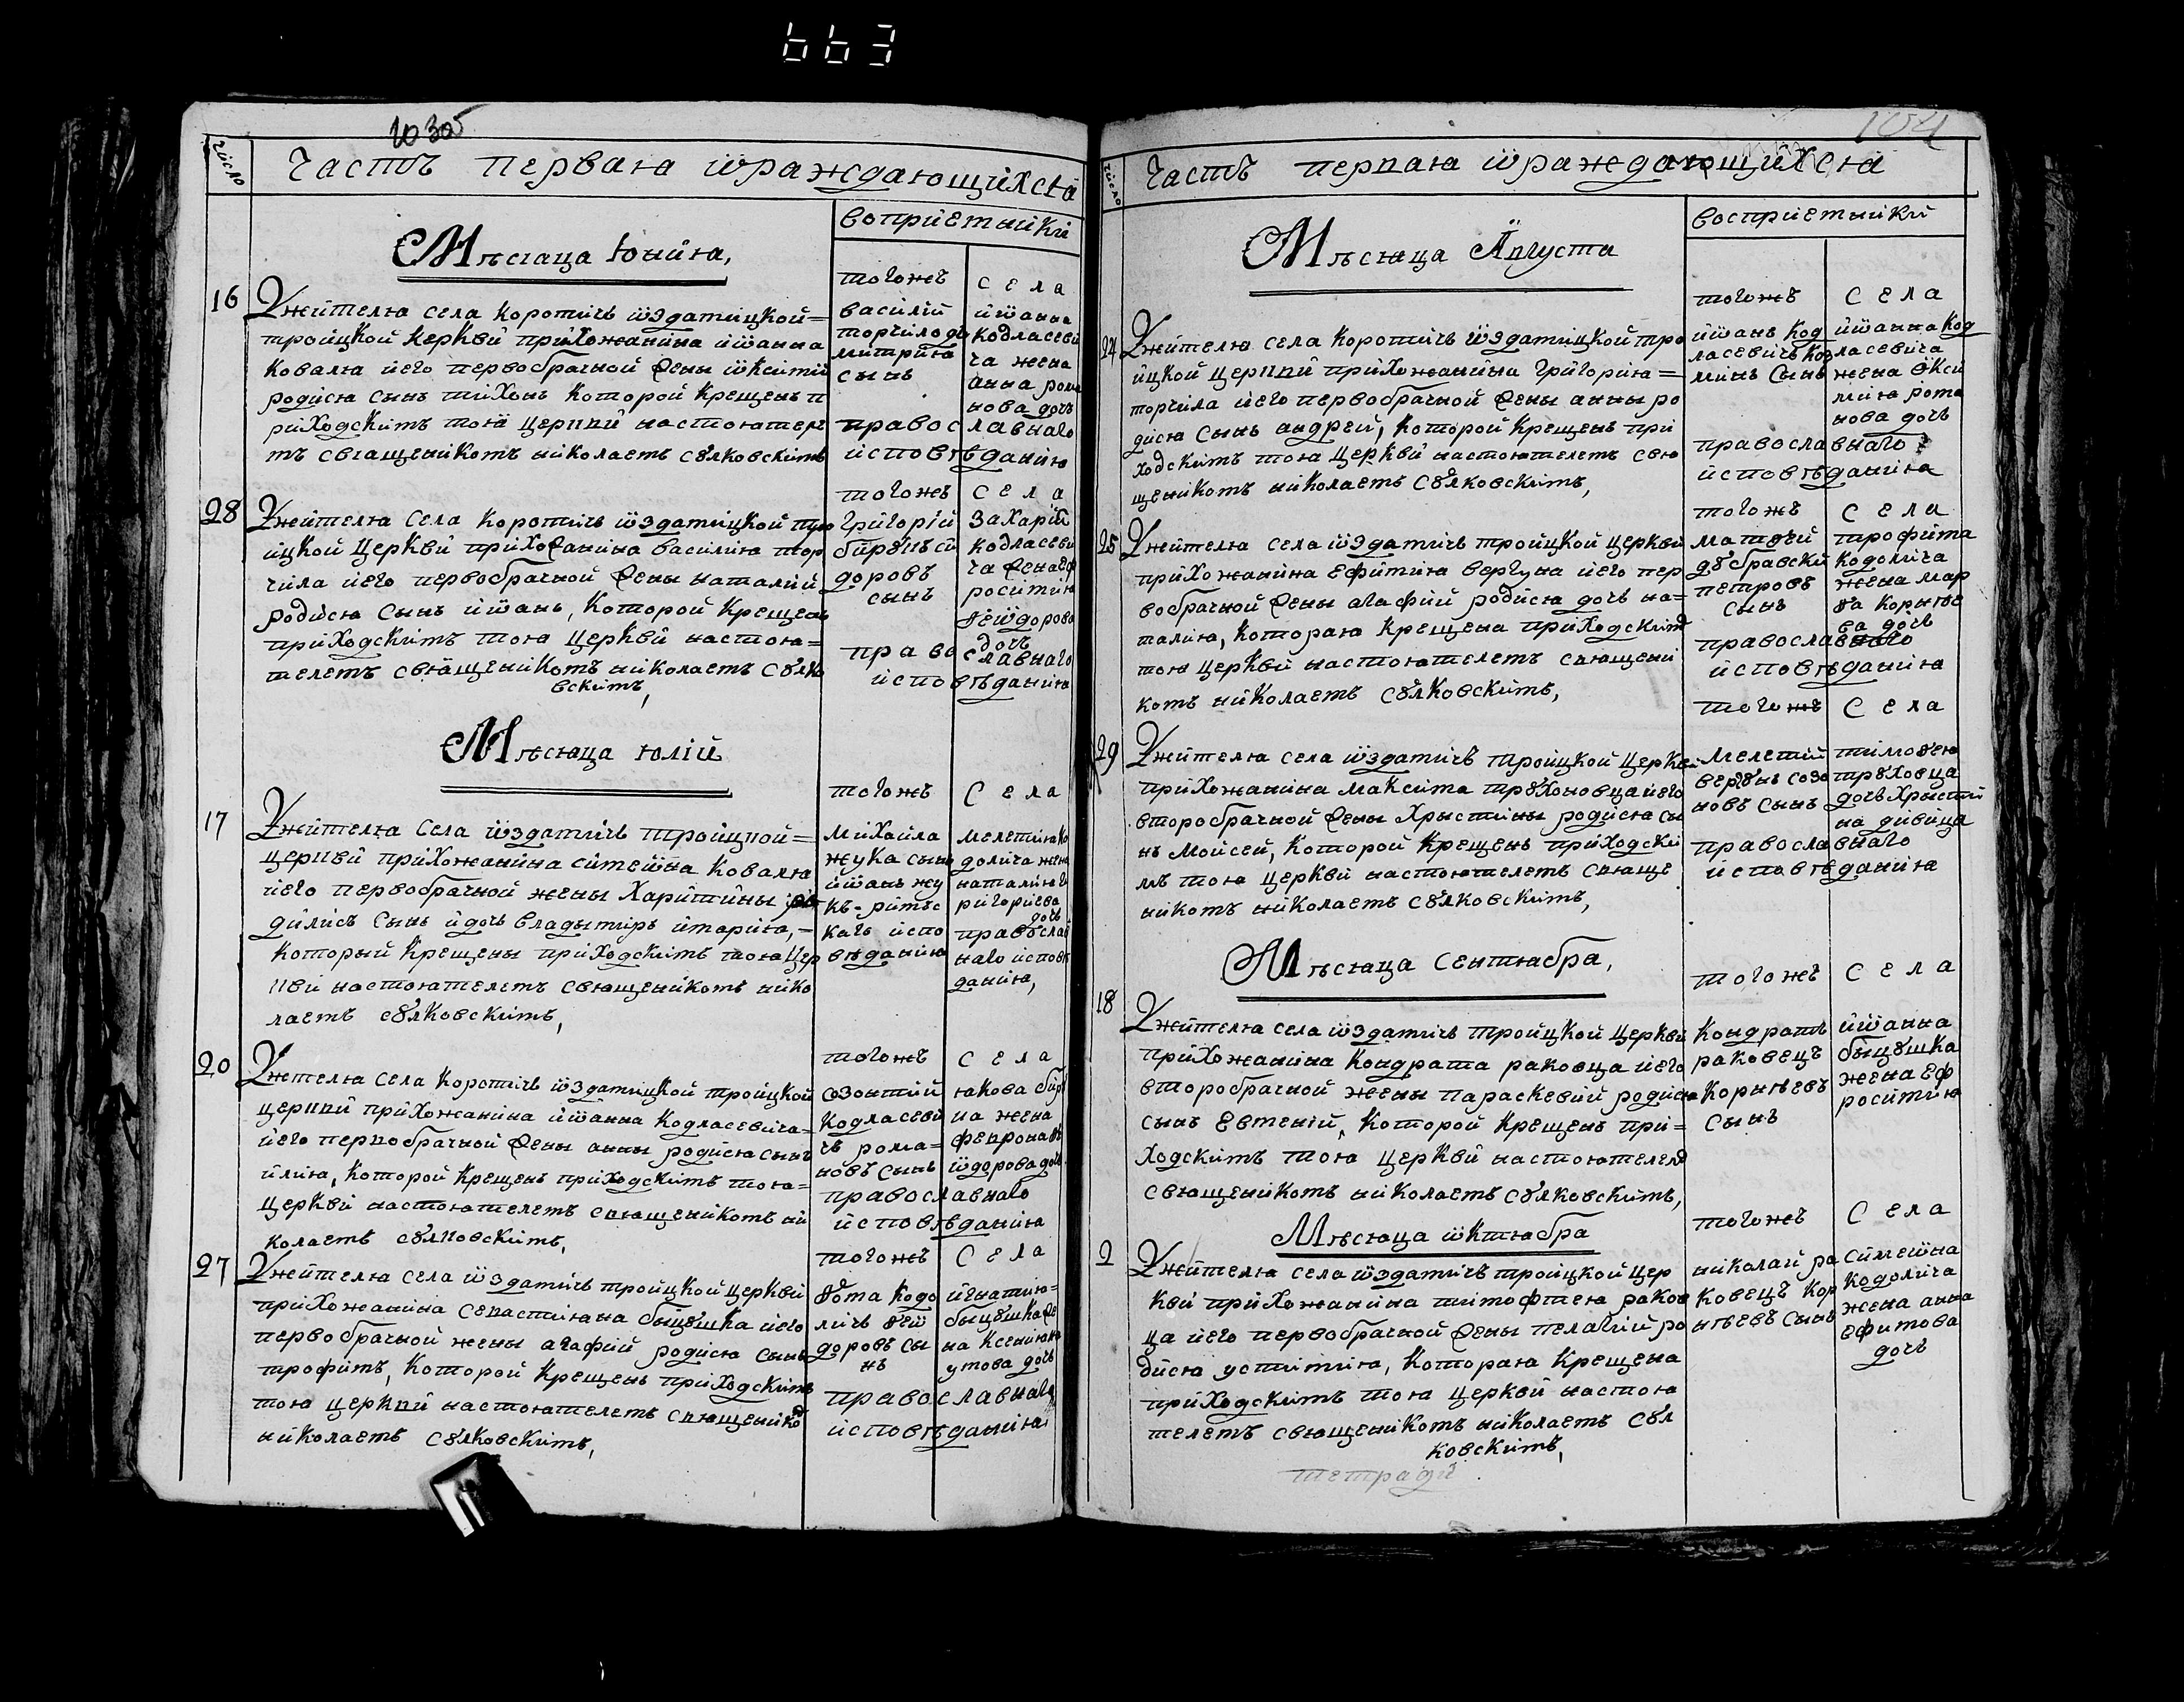 663
103об
Число
Часть первая ѿраждающихся
воприемники
Мѣсяца Юнїя,
16
Ужителя села коротичъ ѿздатицкой=
троицкой церкви прихожанина иѡанна
Коваля иего первобрачной жены ѡксимїи
родися сынъ тихонъ которой крещенъ п
риходскимъ тоя церкви настоятеле
мъ священикомъ николаемъ сȣлковскимъ
тогожъ
василий
торчило ди
митрия
сынъ
села
иѡанна
кодласеви
ча жена
анна рома
нова дочь
православнаго
исповѣдания
28
Ужителя села коротичъ ѿздатицкой тро
ицкой церкви прихожанина василия тор
чила иего первобрачной жены наталии
родися сынъ иѡанъ, которой крещенъ
приходскимъ тоя церкви настоя=
телемъ священикомъ николаемъ сȣлко
вскимъ,
тогожъ
григорїй
доровъ
сынъ
села
захарїи
кодласеви
ча жена еф
росимия
ѳеѡдорова
дочь
православнаго
исповѣдания
Мѣсяца юлїй
17
Ужителя села ѿздатичъ троицкой=
церкви прихожанина симеѡна коваля
иего первобрачной жены харитины ро
дилисъ сынъ идочь владымиръ имария,=
которыи крещены приходскимъ тоя цер
кви настоятелемъ священикомъ нико
лаемъ сȣлковскимъ,
тогожъ
михаила
жука сынъ
иѡанъ жу
къ-римъс
кагъ испо
вѣдания
села
мелетия ко
долича жена
наталия г
ригориева
дочь
православ
наго исповѣ
дания,
20
Ужителя села коротичъ ѿздатицкой троицкой
церкви прихожанина иѡанна кодласевича=
иего первобрачной жены анны родися сынъ
илия, которой крещенъ приходскимъ тоя=
церкви настоятелемъ священикомъ ни
колаемъ сȣлковскимъ,
тогожъ
созонтий
кодласеви
чъ рома=
новъ сынъ
села
якова
на жена
феврона ѳе
ѡдорова дочь
православнаго
исповѣдания
27
Ужителя села ѿздатичъ троицкой церкви
прихожанина севастияна быцȣшка иего
первобрачной жены агафии родися сынъ
трофимъ, которой крещенъ приходскимъ
тоя церкви настоятелемъ священико
николаемъ сȣлковскимъ,
тогожъ
ѳома кодо
личъ ѳеѡ
доровъ сы
нъ
села
игнатия=
быцȣшка же
на ксения на
умова дочь
православнаго
исповѣдания
104
Число
Часть первая ѿраждающихся
восприемники
Мѣсяца Августа
24
Ужителя села коротичъ ѿздатицкой тро
ицкой церкви прихожанина григория=
торчила иего первобрачной жены анны ро
дися сынъ андрей, которой крещенъ при
ходскимъ тоя церкви настоятелемъ свя
щеникомъ николаемъ сȣлковскимъ,
тогожъ
иѡанъ код
ласевичъ коз
минъ сынъ
села
иѡанна код
ласевича
жена ѡкси
мия рома
нова дочь
православнаго
исповѣдания
25
Ужителя села ѿздатичъ троицкой церкви
прихожанина ефимия вергуна иего пер
вобрачной жены агафии родися дочь на=
талия, которая крещена приходским
тоя церкви настоятелемъ священи
комъ николаемъ сȣлковскимъ,
тогожъ
матѳей
дȣбравски
петровъ
сынъ
села
трофима
кодолича
жена мар
ѳа корнѣе
ва дочь
православнаго
исповѣдания
29
Ужителя села ѿздатичъ троицкой церкви
прихожанина максима трȣхоновца иего
второбрачной жены христины родися сы
нъ моисей, которой крещенъ приходски
мъ тоя церкви настоятелемъ свяще
никомъ николаемъ сȣлковскимъ,
тогожъ
мелетий
вергȣнъ созо
новъ сынъ
села
тимоѳея
трȣховца
дочь христи
на дивица
православнаго
исповѣдания
Мѣсяца сентября,
18
Ужителя села ѿздатичъ троицкой церкви
прихожанина кондрата раковца иего
второбрачной жены параскевии родися
сынъ евгений, которой крещенъ при=
ходскимъ тоя церкви настоятелем
священикомъ николаемъ сȣлковскимъ,
тогожъ
кондратъ
раковецъ
корнѣевъ
сынъ
села
иѡанна
быцȣшка
жена еф
росимия
Мѣсяца ѡктября
2
Ужителя села ѿздатичъ троицкой цер
кви прихожанина тимофтея раков
ца иего первобрачной жены пелагии ро
дися устимия, которая крещена
приходскимъ тоя церкви настоя
телемъ священикомъ николаемъ сȣл
ковскимъ,
тогожъ
николай ра
ковецъ кор
нѣевъ сынъ
села
симеѡна
кодолича
жена анна
ефимова
дочь
тетради